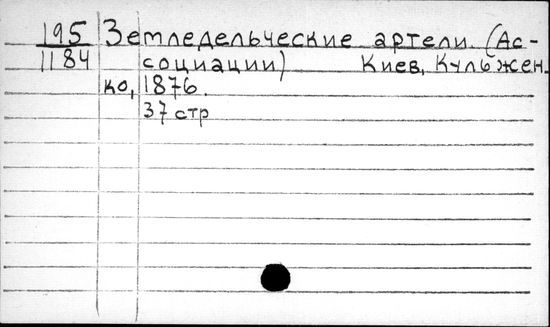 195 Земледельческие артели. (Ас-
1184 социации) Киев, Кульжен-
ко, 1876.
37 стр